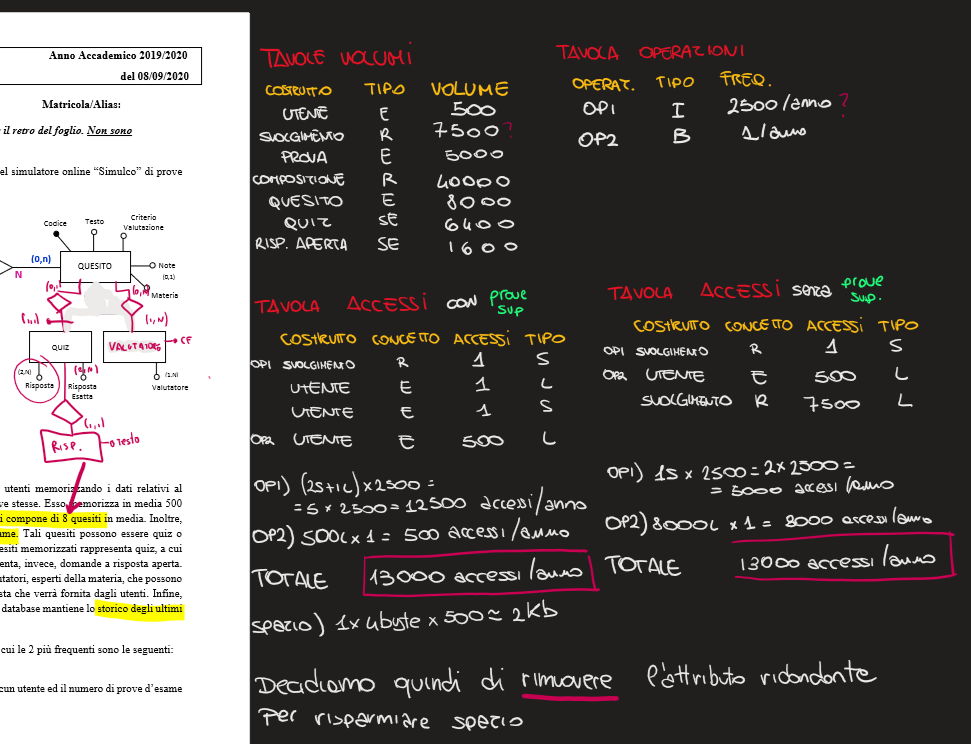 Anno Accademico 2019/2020
del 08/09/2020
Matricola/Alias:
e il retro del foglio. Non sono
el simulatore online “Simulco” di prove
Codice
Testo
Criterio
Valutazione
(0,n)
N
QUESITO
Note
(0,1)
Materia
(0,1)
(0,N)
(1,1)
(1,N)
QUIZ
VALUTATORE
CF
(2,N)
Risposta
(2,N)
Risposta
Esatta
(1,N)
Valutatore
(1,1)
RISP.
Testo
utenti memorizzando i dati relativi al
ve stesse. Esso memorizza in media 500
i compone di 8 quesiti in media. Inoltre,
ume. Tali quesiti possono essere quiz o
esiti memorizzati rappresenta quiz, a cui
enta, invece, domande a risposta aperta.
utatori, esperti della materia, che possono
sta che verrà fornita dagli utenti. Infine,
database mantiene lo storico degli ultimi
cui le 2 più frequenti sono le seguenti:
cun utente ed il numero di prove d’esame
TAVOLE VOLUMI
COSTRUTTO TIPO VOLUME
UTENTE E 500
SVOLGIMENTO R 7500 ?
PROVA E 5000
COMPOSIZIONE R 40000
QUESITO E 8000
QUIZ SE 6400
RISP. APERTA SE 1600
TAVOLA OPERAZIONI
OPERAT. TIPO FREQ.
OP1 I 2500/anno ?
OP2 B 1/anno
TAVOLA ACCESSI con prove sup
COSTRUTTO CONCETTO ACCESSI TIPO
OP1 SVOLGIMENTO R 1 S
UTENTE E 1 L
UTENTE E 1 S
OP2 UTENTE E 500 L
OP1) (2S+1L)×2500 =
= 5 × 2500 = 12500 accessi/anno
OP2) 500L×1 = 500 accessi/anno
TOTALE 13000 accessi/anno
spazio) 1× 4byte × 500 ≈ 2Kb
TAVOLA ACCESSI senza prove sup.
COSTRUTTO CONCETTO ACCESSI TIPO
OP1 SVOLGIMENTO R 1 S
OP2 UTENTE E 500 L
SVOLGIMENTO R 7500 L
OP1) 1S × 2500 = 2×2500 =
= 5000 accessi/anno
OP2) 8000L × 1 = 8000 accessi/anno
TOTALE 13000 accessi/anno
Decidiamo quindi di rimuovere l'attributo ridondante
Per risparmiare spazio